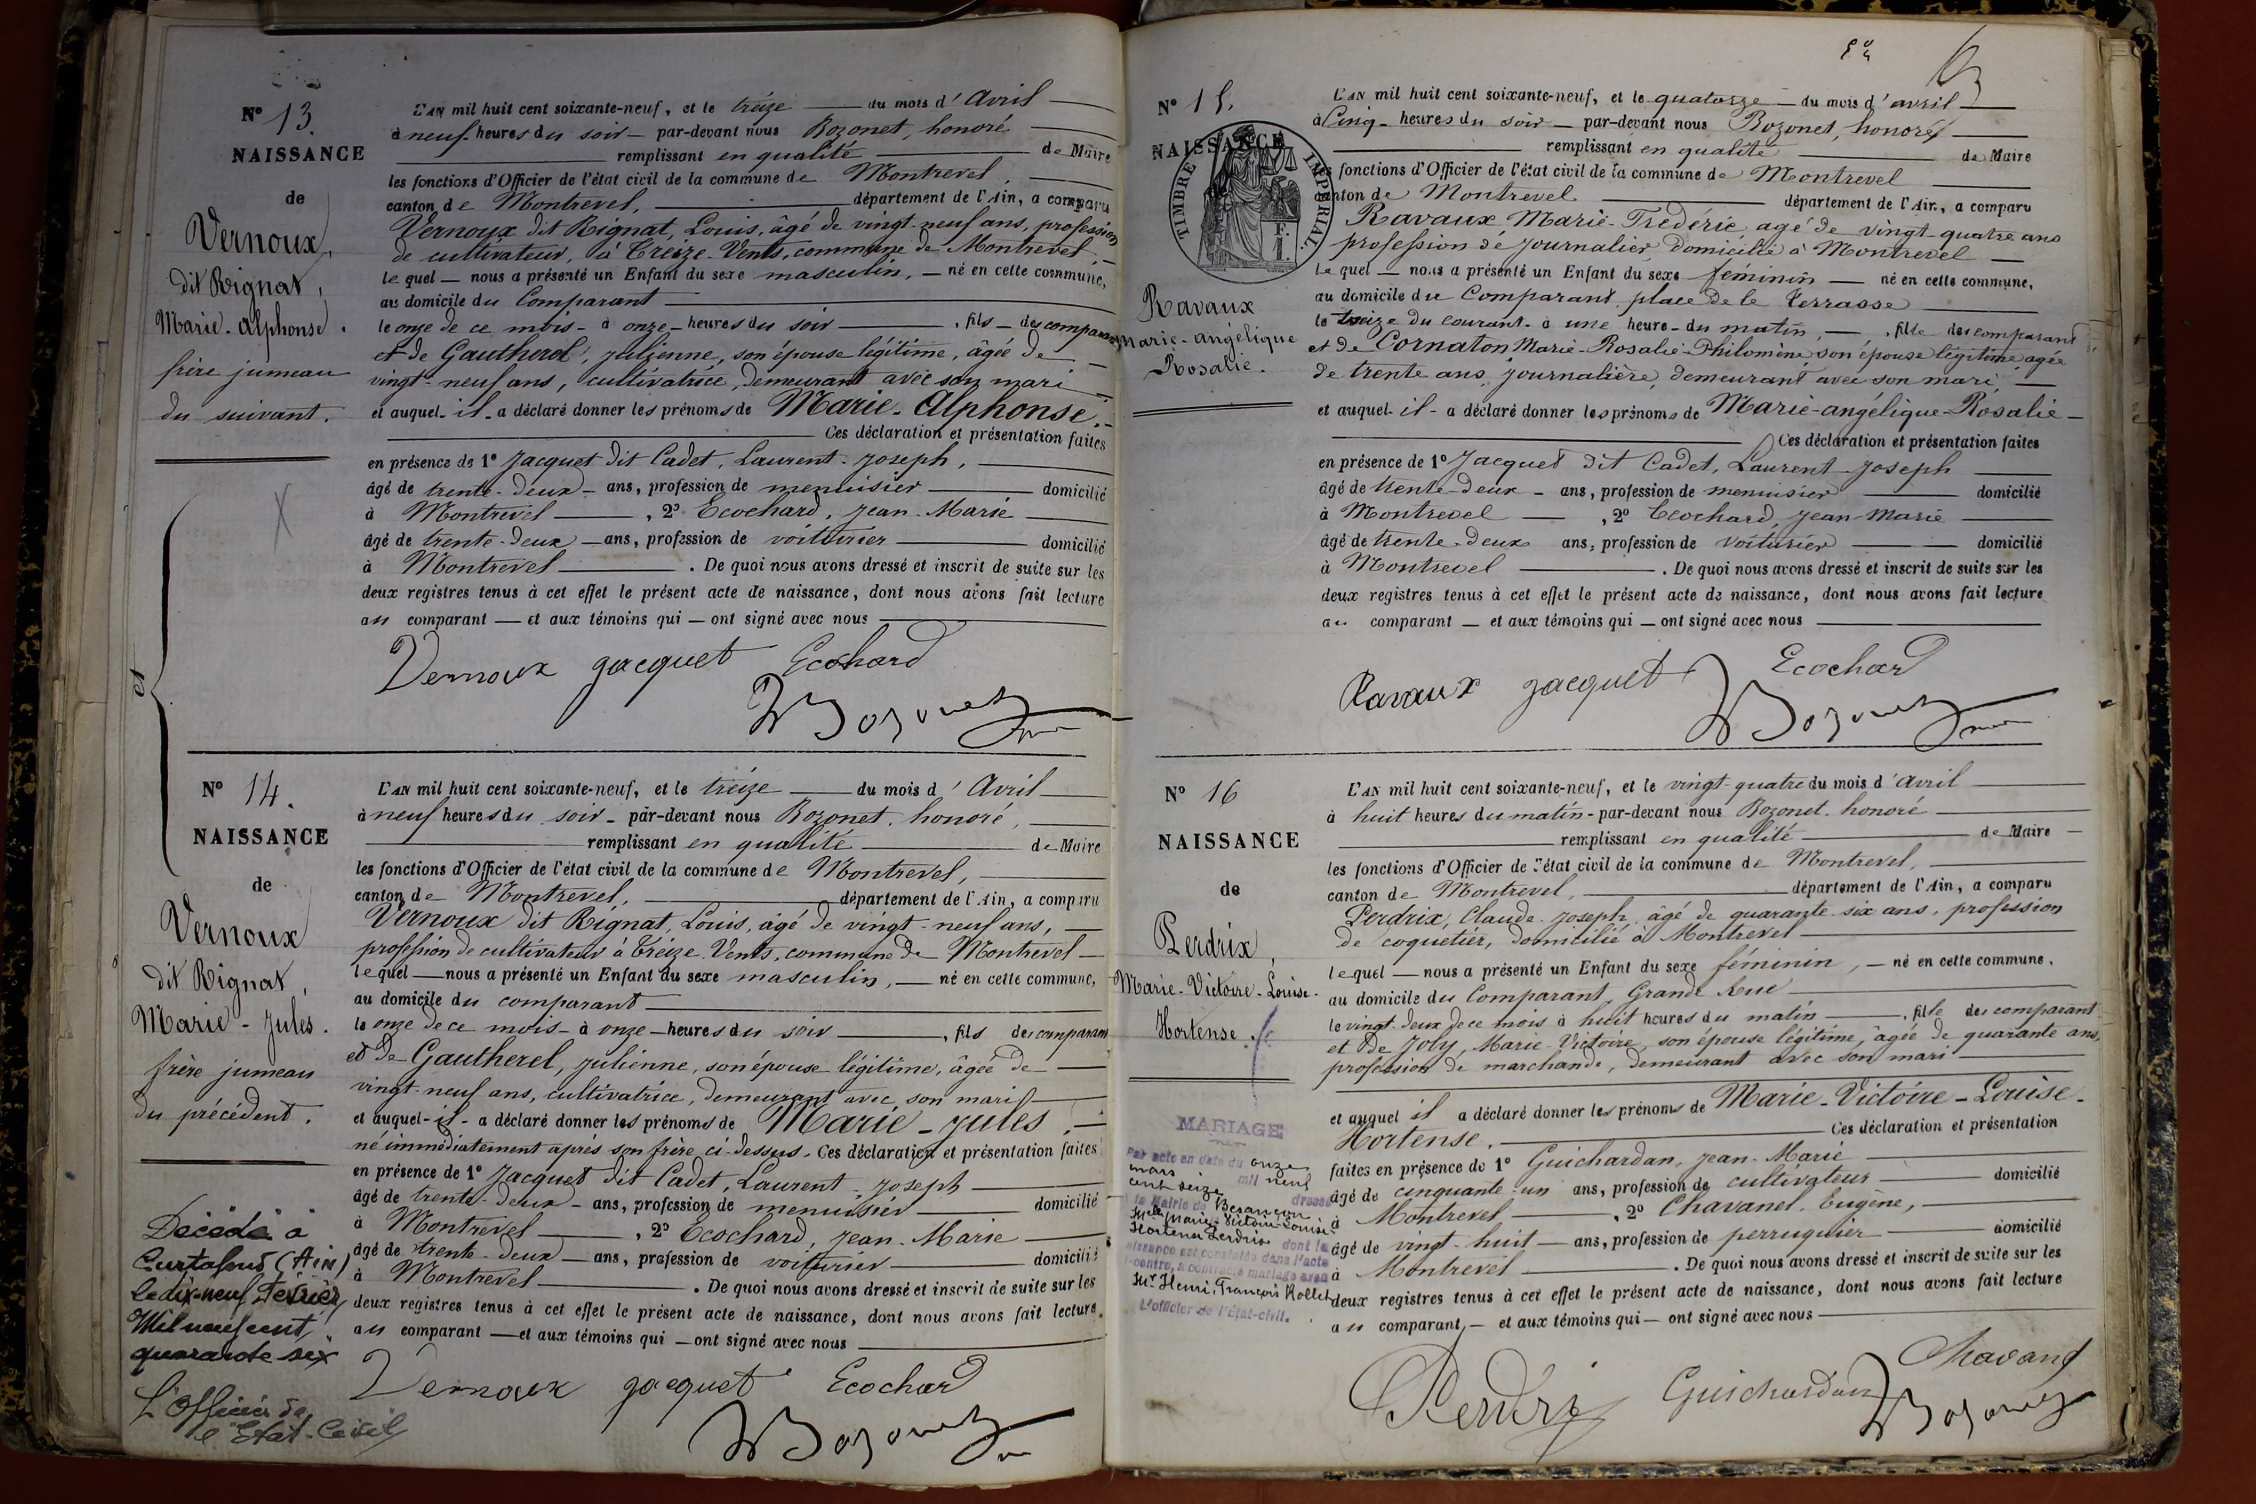 N° 13.
NAISSANCE
de
Vernoux,
dit Rignat,
Marie-Alphonse.
frère jumeau
du suivant.
et
L'AN mil huit cent soixante-neuf, et le treize du mois d'Avril
à neuf heures du soir par-devant nous Bozonet, honoré
remplissant en qualité de Maire
les fonctions d'Officier de l'état civil de la commune de Montrevel,
canton de Montrevel, département de l'Ain, a comparu
Vernoux dit Rignat, Louis, âgé de vingt-neuf ans, profession
de cultivateur, à Treize-Vents, commune de Montrevel,
lequel nous a présenté un Enfant du sexe masculin, né en cette commune,
au domicile du Comparant
le onze de ce mois à onze heures du soir, fils des comparant
et de Gautherel, Julienne, son épouse légitime, âgée de
vingt-neuf ans, cultivatrice, demeurant avec son mari
et auquel il a déclaré donner les prénoms de Marie-Alphonse.
Ces déclaration et présentation faites
en présence de 1° Jacquet dit Cadet, Laurent-Joseph,
âgé de trente-deux ans, profession de menuisier domicilié
à Montrevel, 2° Ecochard, Jean-Marie
âgé de trente-deux ans, profession de voiturier domicilié
à Montrevel. De quoi nous avons dressé et inscrit de suite sur les
deux registres tenus à cet effet le présent acte de naissance, dont nous avons fait lecture
au comparant et aux témoins qui ont signé avec nous
Vernoux Jacquet Ecochard
Bozonet
N° 14.
NAISSANCE
de
Vernoux
dit Rignat,
Marie-Jules.
frère jumeau
du précédent.
Décédé à
Curtafond (Ain)
le dix-neuf Février
Mil neuf cent
quarante six
L'Officier de
l'Etat-Civil
L'AN mil huit cent soixante-neuf, et le treize du mois d'Avril
à neuf heures du soir par-devant nous Bozonet, honoré,
remplissant en qualité de Maire
les fonctions d'Officier de l'état civil de la commune de Montrevel,
canton de Montrevel, département de l'Ain, a comparu
Vernoux dit Rignat, Louis, âgé de vingt-neuf ans,
profession de cultivateur à Treize-Vents, commune de Montrevel
lequel nous a présenté un Enfant du sexe masculin, né en cette commune,
au domicile du comparant
le onze de ce mois à onze heures du soir, fils des comparant
et de Gautherel, Julienne, son épouse légitime, âgée de
vingt-neuf ans, cultivatrice, demeurant avec son mari
et auquel il a déclaré donner les prénoms de Marie-Jules,
né immédiatement après son frère ci-dessus. Ces déclaration et présentation faites
en présence de 1° Jacquet dit Cadet, Laurent-Joseph
âgé de trente-deux ans, profession de menuisier domicilié
à Montrevel, 2° Ecochard, Jean-Marie
âgé de trente-deux ans, profession de voiturier domicilié
à Montrevel. De quoi nous avons dressé et inscrit de suite sur les
deux registres tenus à cet effet le présent acte de naissance, dont nous avons fait lecture
au comparant et aux témoins qui ont signé avec nous
Vernoux Jacquet Ecochard
Bozonet
N° 15.
NAISSANCE
TIMBRE IMPERIAL.
Ravaux
Marie-angélique
Rosalie.
L'AN mil huit cent soixante-neuf, et le quatorze du mois d'avril
à Cinq heures du soir par-devant nous Bozonet, honoré
remplissant en qualité de Maire
les fonctions d'Officier de l'état civil de la commune de Montrevel
canton de Montrevel département de l'Ain, a comparu
Ravaux Marie-Frédéric agé de vingt-quatre ans
profession de journalier, domicilié à Montrevel
lequel nous a présenté un Enfant du sexe féminin né en cette commune,
au domicile du Comparant, place de la terrasse
le treize du courant à une heure du matin, fille des comparant
et de Cornaton Marie-Rosalie-Philomène, son épouse légitime, agée
de trente ans, journalière, demeurant avec son mari,
et auquel il a déclaré donner les prénoms de Marie-angélique-Rosalie
Ces déclaration et présentation faites
en présence de 1° Jacquet dit Cadet, Laurent Joseph
âgé de trente-deux ans, profession de menuisier domicilié
à Montrevel, 2° Ecochard, Jean Marie
âgé de trente-deux ans, profession de voiturier domicilié
à Montrevel. De quoi nous avons dressé et inscrit de suite sur les
deux registres tenus à cet effet le présent acte de naissance, dont nous avons fait lecture
au comparant et aux témoins qui ont signé avec nous
Ravaux Jacquet Ecochard
Bozonet
N° 16
NAISSANCE
de
Perdrix,
Marie-Victoire-Louise-
Hortense.
MARIAGE
Par acte en date du onze
mars mil neuf
cent seize dressé
à la Mairie de Besançon
Mlle Marie-Victoire-Louise-
Hortense Perdrix dont la
naissance est constatée dans l'acte
ci-contre, a contracté mariage avec
Mr Henri, François
L'officier de l'Etat-civil.
L'AN mil huit cent soixante-neuf, et le vingt-quatre du mois d'Avril
à huit heures du matin par-devant nous Bozonet, honoré
remplissant en qualité de Maire
les fonctions d'Officier de l'état civil de la commune de Montrevel,
canton de Montrevel, département de l'Ain, a comparu
Perdrix, Claude-Joseph, âgé de quarante-six ans, profession
de coquetier, domicilié à Montrevel
lequel nous a présenté un Enfant du sexe féminin, né en cette commune,
au domicile du Comparant, Grande Rue
le vingt-deux de ce mois à huit heures du matin, fille des comparant
et de Joly, Marie-Victoire, son épouse légitime, âgée de quarante ans,
profession de marchande, demeurant avec son mari
et auquel il a déclaré donner les prénoms de Marie-Victoire-Louise-
Hortense. Ces déclaration et présentation
faites en présence de 1° Guichardan, Jean-Marie
âgé de cinquante-un ans, profession de cultivateur domicilié
à Montrevel, 2° Chavanel, Eugène,
âgé de vingt-huit ans, profession de perruquier domicilié
à Montrevel. De quoi nous avons dressé et inscrit de suite sur les
deux registres tenus à cet effet le présent acte de naissance, dont nous avons fait lecture
au comparant, et aux témoins qui ont signé avec nous
Perdrix Guichardan Chavanel
Bozonet